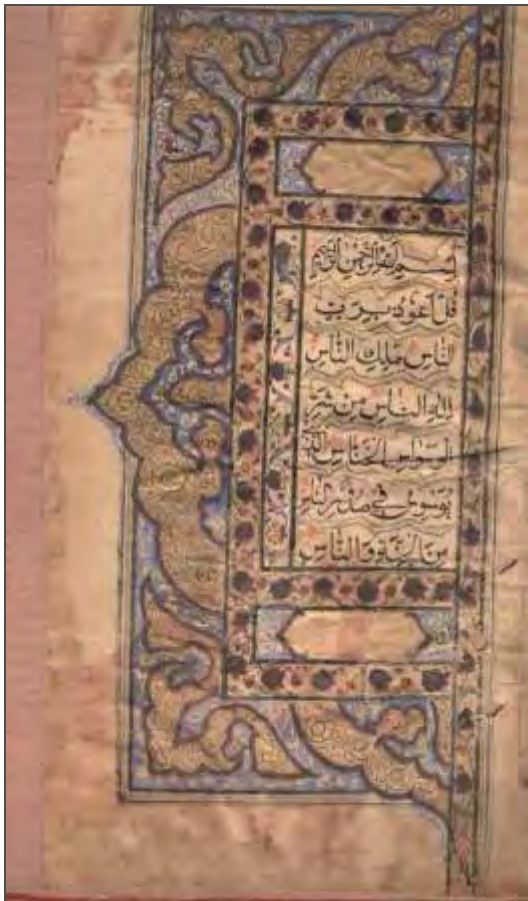 بِسْمِ اللهِ الرَّحْمٰنِ الرَّحِيْمِ
قُلْ اَعُوْذُ بِرَبِّ
النَّاسِ مَلِكِ النَّاسِ
اِلٰهِ النَّاسِ مِنْ شَرِّ
الْوَسْوَاسِ الْخَنَّاسِ الَّذِيْ
يُوَسْوِسُ فِيْ صُدُوْرِ النَّاسِ
مِنَ الْجِنَّةِ وَالنَّاسِ